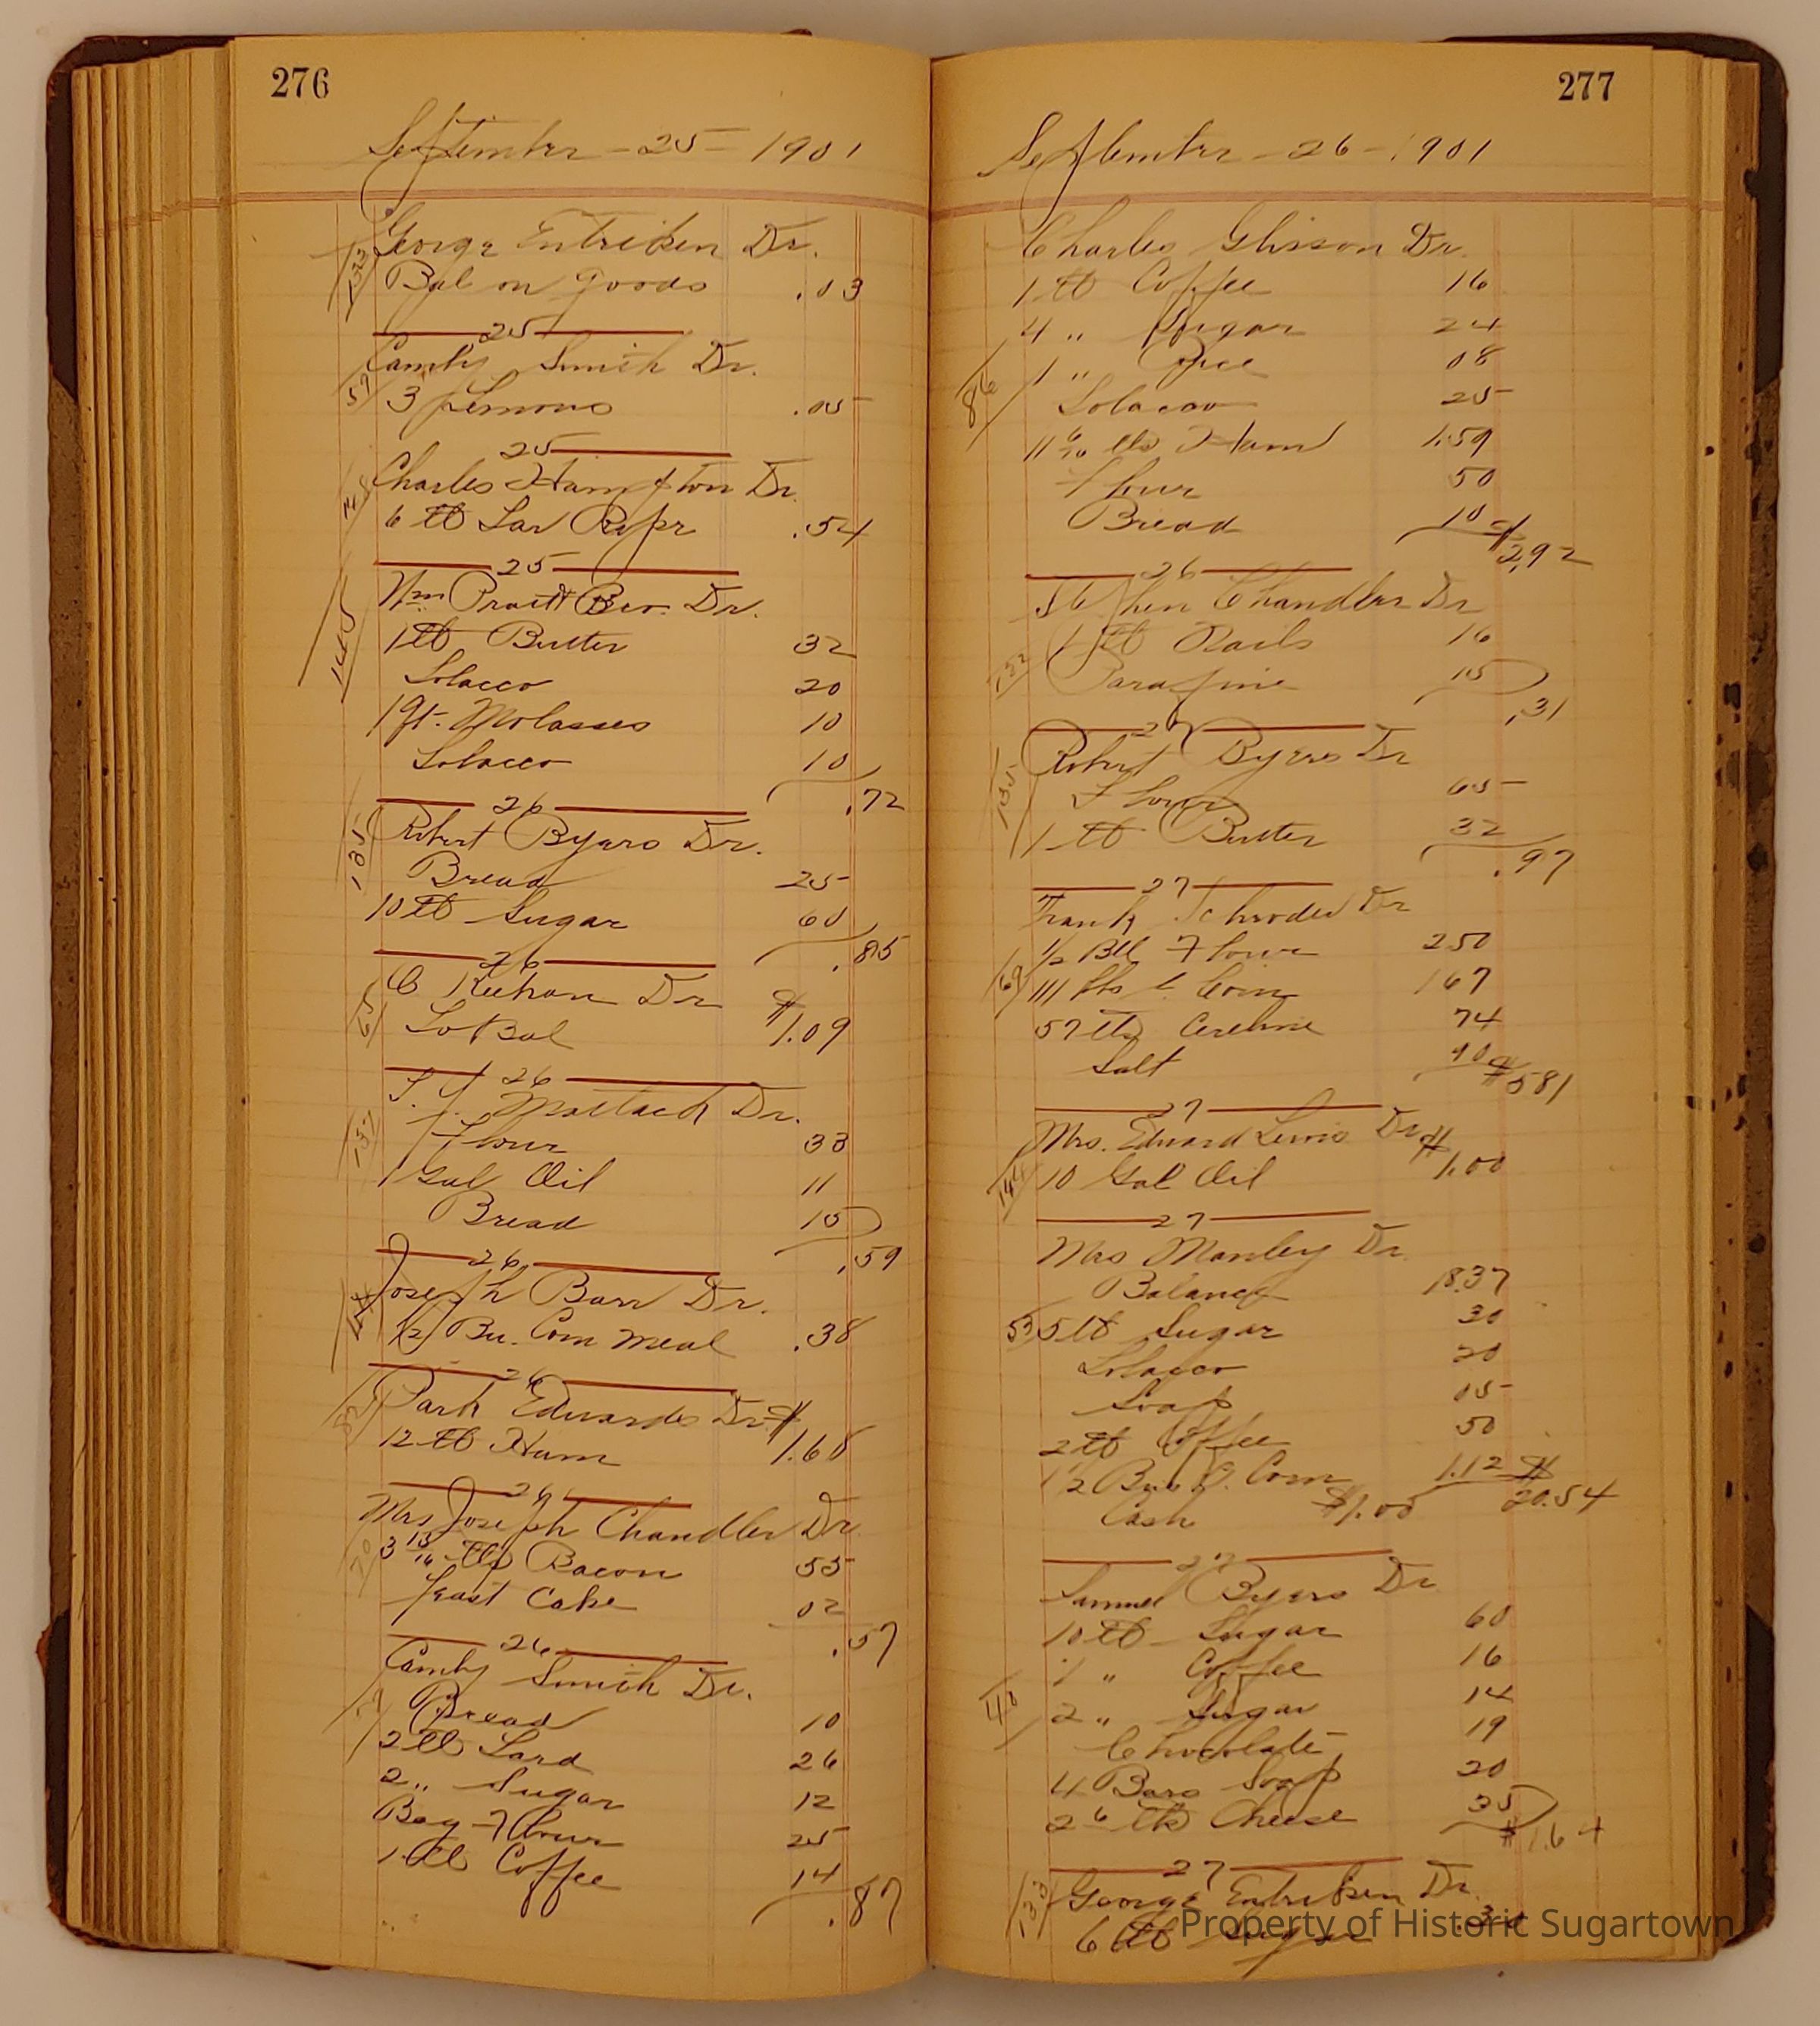 276
September - 25 - 1901
133 George Entriken Dr.
Bal on goods .03
25
59 Camby Smith Dr.
3 Lemons .05
25
Charles Hampton Dr.
6 lb Lav Papr .54
25
145 Wm Pratt Bro. Dr.
1 lb Butter 32
Tobacco 20
1 qt. Molasses 10
Tobacco 10
.72
26
135 Robert Byers Dr.
Bread 25
10 lb Sugar 60
.85
26
65 C Keehan Dr $
To Bal 1.09
26
137 Mattack Dr.
Flour 33
1 Gal Oil 11
Bread 15
.59
26
Joseph Barr Dr.
1/2 Bu. Corn Meal .38
26
82 Park Edwards Dr $
12 lb Ham 1.68
26
70 Mrs Joseph Chandler Dr
3 15/16 lbs Bacon 55
Yeast Cake 02
.57
26
Camby Smith Dr.
Bread 10
2 lb Lard 26
2 " Sugar 12
Bag Flour 25
1 lb Coffee 14
.87
277
September - 26 - 1901
Charles Glisson Dr.
1 lb Coffee 16
4 " Sugar 24
86 1 " Rice 08
Tobacco 25
11 6/16 lbs Ham 1.59
Flour 50
Bread 10
$ 2.92
26
Stephen Chandler Dr
122 1 lb Nails 16
Paraffine 15
.31
27
135 Robert Byers Dr
Flour 65
1 lb Butter 32
.97
27
Frank Schroder Dr
1/2 Bbl Flour 250
69 111 lbs C. Corn 167
57 lbs Cerealine 74
Salt 90
$ 581
27
Mrs. Edward Lewis Dr $
144 10 Gal Oil 1.00
27
Mrs Manley Dr.
Balance 18.37
53 5 lb Sugar 30
Tobacco 20
Soap 05
2 lb Coffee 50
1 1/2 Bus. C. Corn 1.12
$ 20.54
Cash $1.00
27
Samuel Byers Dr
10 lb Sugar 60
1 " Coffee 16
40 2 " Sugar 14
Chocolate 19
4 Bars Soap 20
2 6 lbs Cheese 35
$ 1.64
27
133 George Entriken Dr.
6 lb Sugar
Property of Historic Sugartown